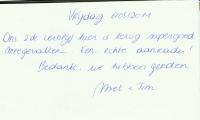 Vrijdag
Ons 2de verblijf hier is terug supergoed
meegevallen. Een echte aanrader!
Bedankt. we hebben genoten
& Tim